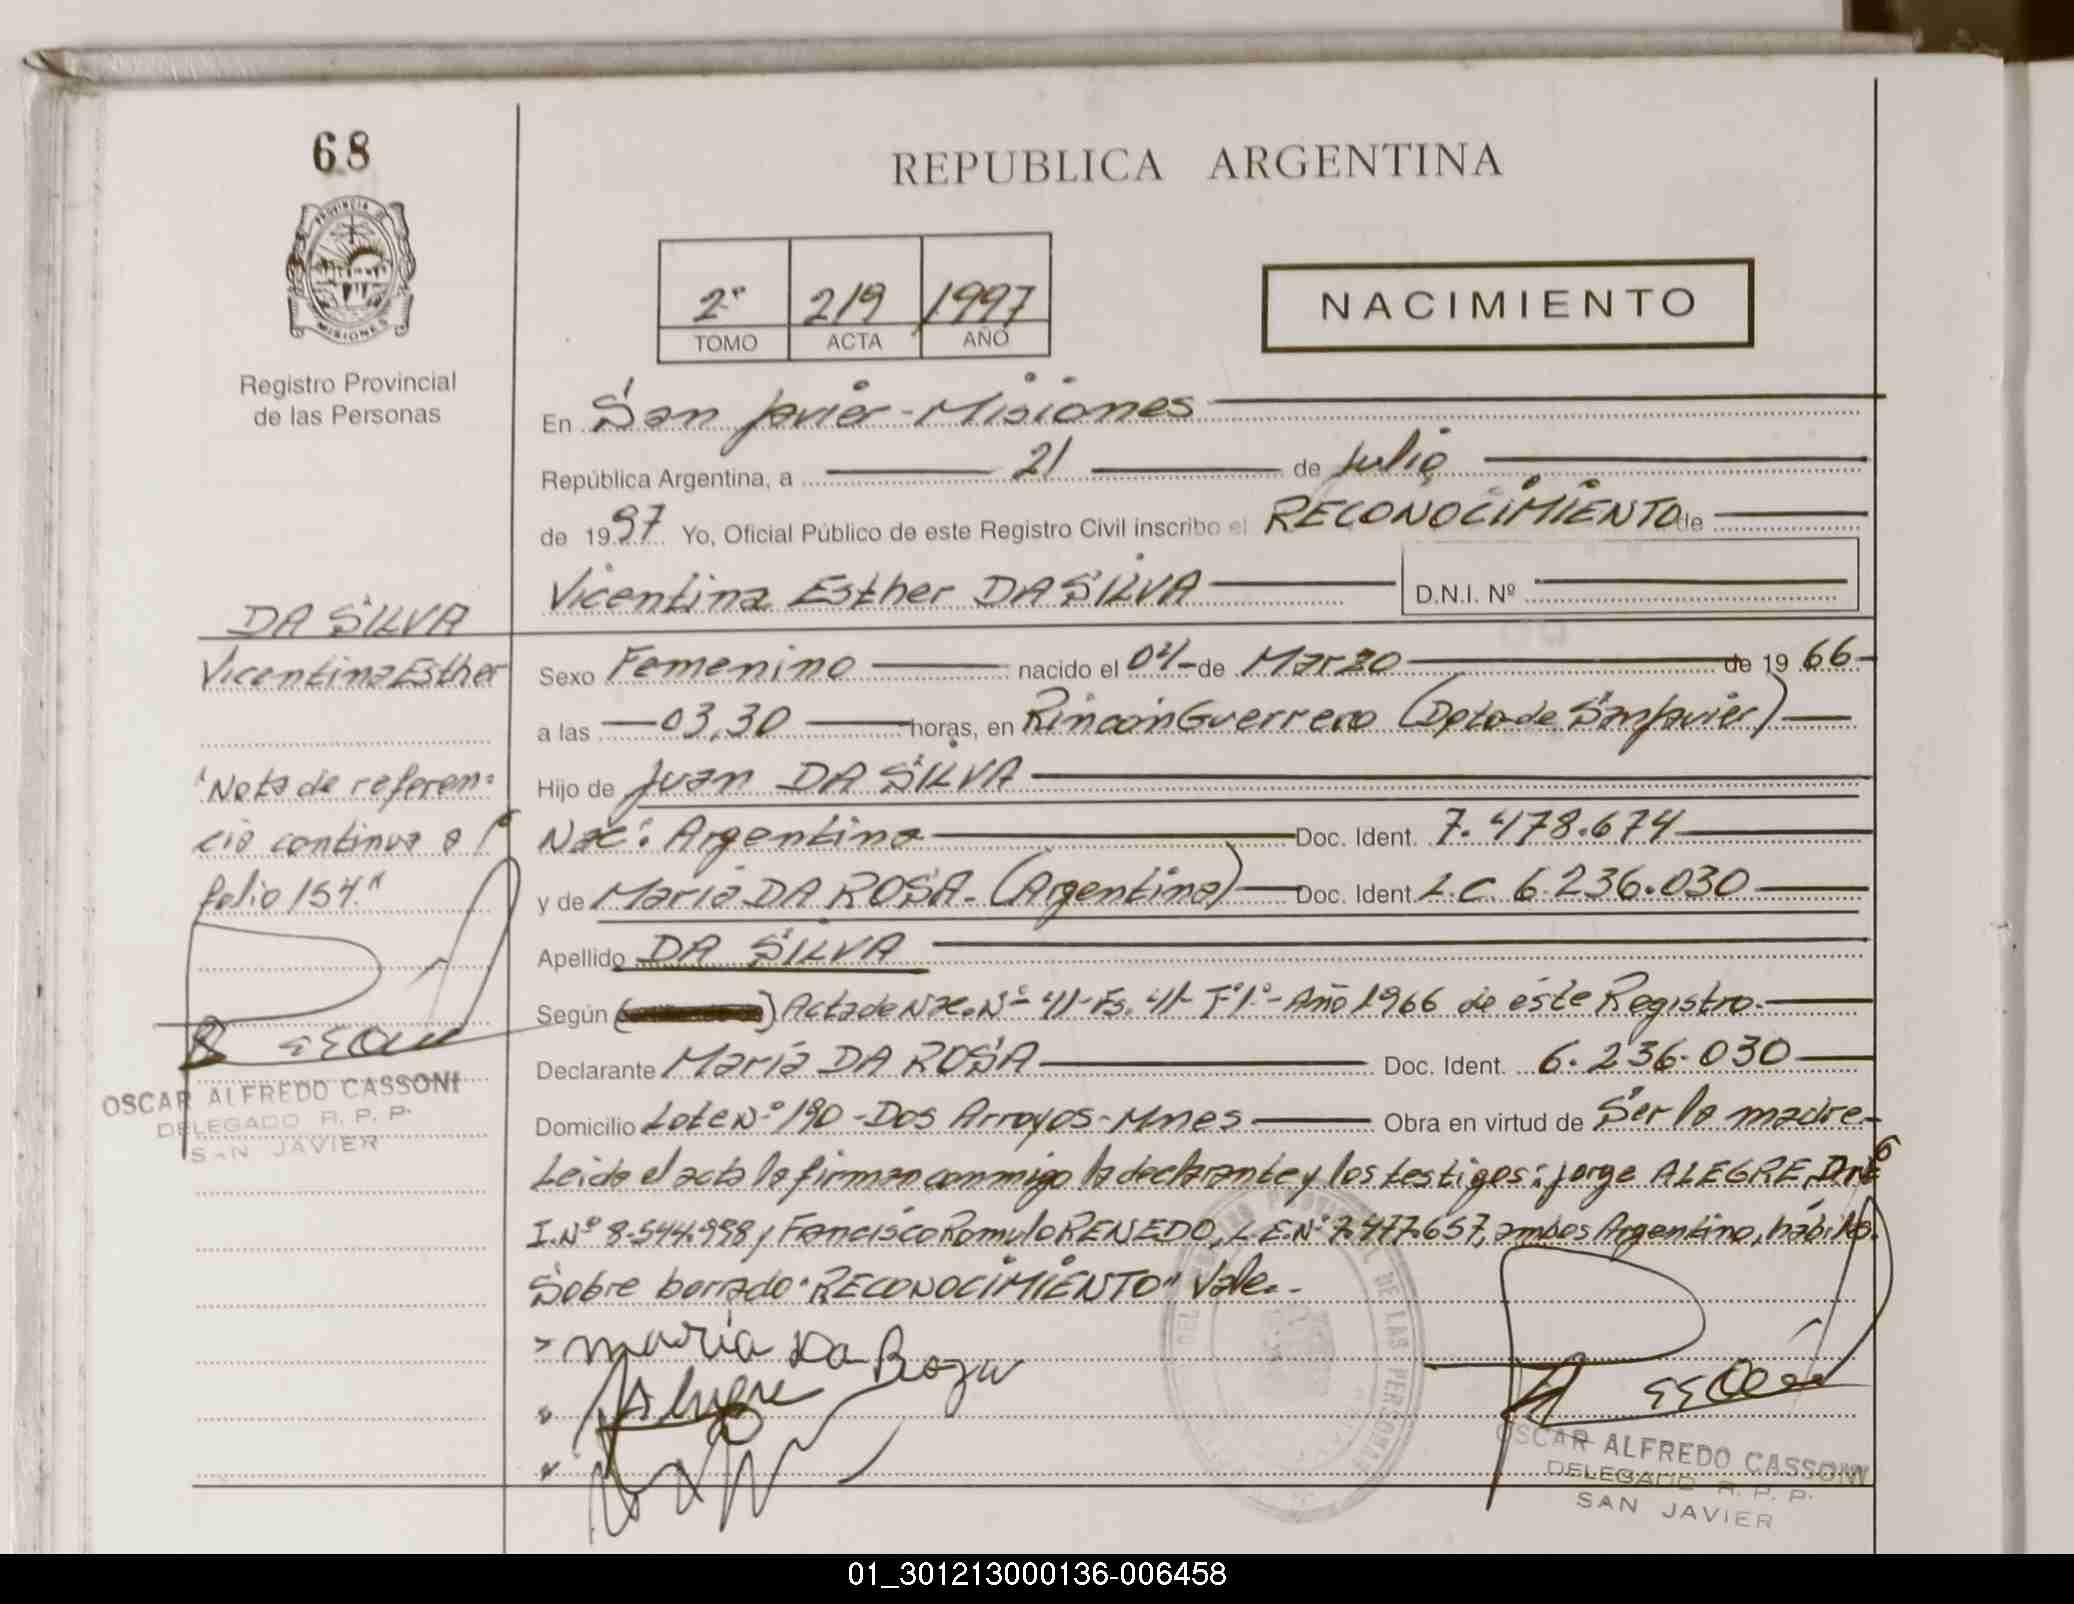 68
REPUBLICA ARGENTINA
PROVINCIA DE
MISIONES
Registro Provincial
de las Personas
2º 219 1997
TOMO ACTA AÑO
NACIMIENTO
En San Javier - Misiones
República Argentina, a 21 de Julio
de 1997 Yo, Oficial Público de este Registro Civil inscribo el RECONOCIMIENTO de
Vicentina Esther DA SILVA D.N.I. Nº
DA SILVA
Vicentina Esther
Sexo Femenino nacido el 04 de Marzo de 1966
a las 03,30 horas, en Rincón Guerrero (Dpto de San Javier)
Hijo de Juan DA SILVA
Nac: Argentina Doc. Ident. 7.478.674
y de María DA ROSA. (Argentina) Doc. Ident. L.C. 6.236.030
Apellido DA SILVA
Según ( ) Acta de Nac. Nº 41 - Fs. 41 - Tº 1º - Año 1966 de éste Registro.
Declarante María DA ROSA Doc. Ident. 6.236.030
Domicilio Lote Nº 190 - Dos Arroyos - Mnes Obra en virtud de Ser la madre
Leida el acta la firman conmigo la declarante y los testigos: Jorge ALEGRE, D.N.
I. Nº 8.544.998 y Francisco Romulo RENEDO, L.E. Nº 7.477.657, ambos Argentino, hábiles.
Sobre borrado "RECONOCIMIENTO" Vale.-
maria Da Roza
Alegre
"Nota de referen-
cia continua a 1º
folio 154"
OSCAR ALFREDO CASSONI
DELEGADO R. P. P.
SAN JAVIER
DE LAS PERSONAS
OSCAR ALFREDO CASSONI
DELEGADO R. P. P.
SAN JAVIER
01_301213000136-006458